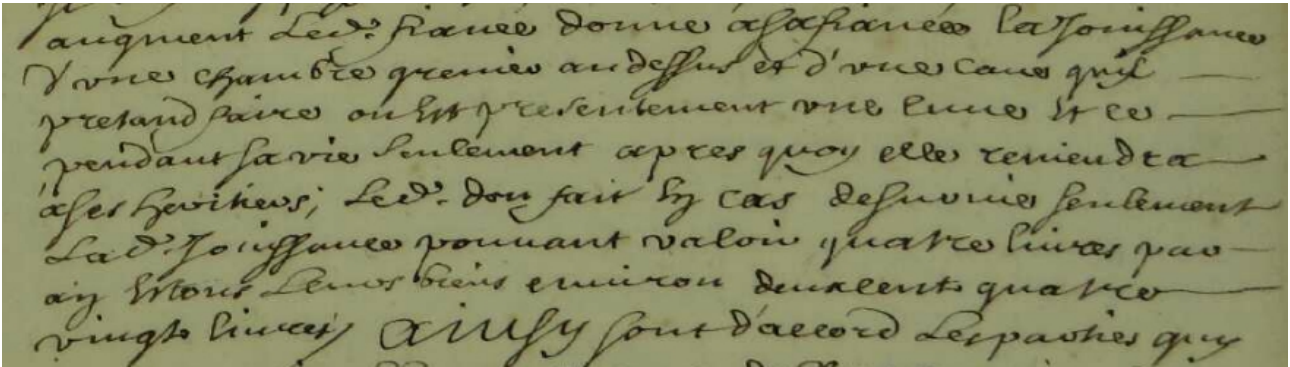 augment Led. fiancé donne asafiancée la Jouissance
d'vne chambre grenier audessus et d'vne Caue quil
pretand faire ou Est presentement vne Cuue Et ce
pendant sa vie seulement apres quoy elle reuiendra
ases heritiers; Led. don fait En cas desuruie seulement
Lad. Jouissance pouuant valoir quatre liures par
an Et tous Leurs biens enuiron deux cent quatre
vingts liures Ainsy sont d'accord Les parties quy